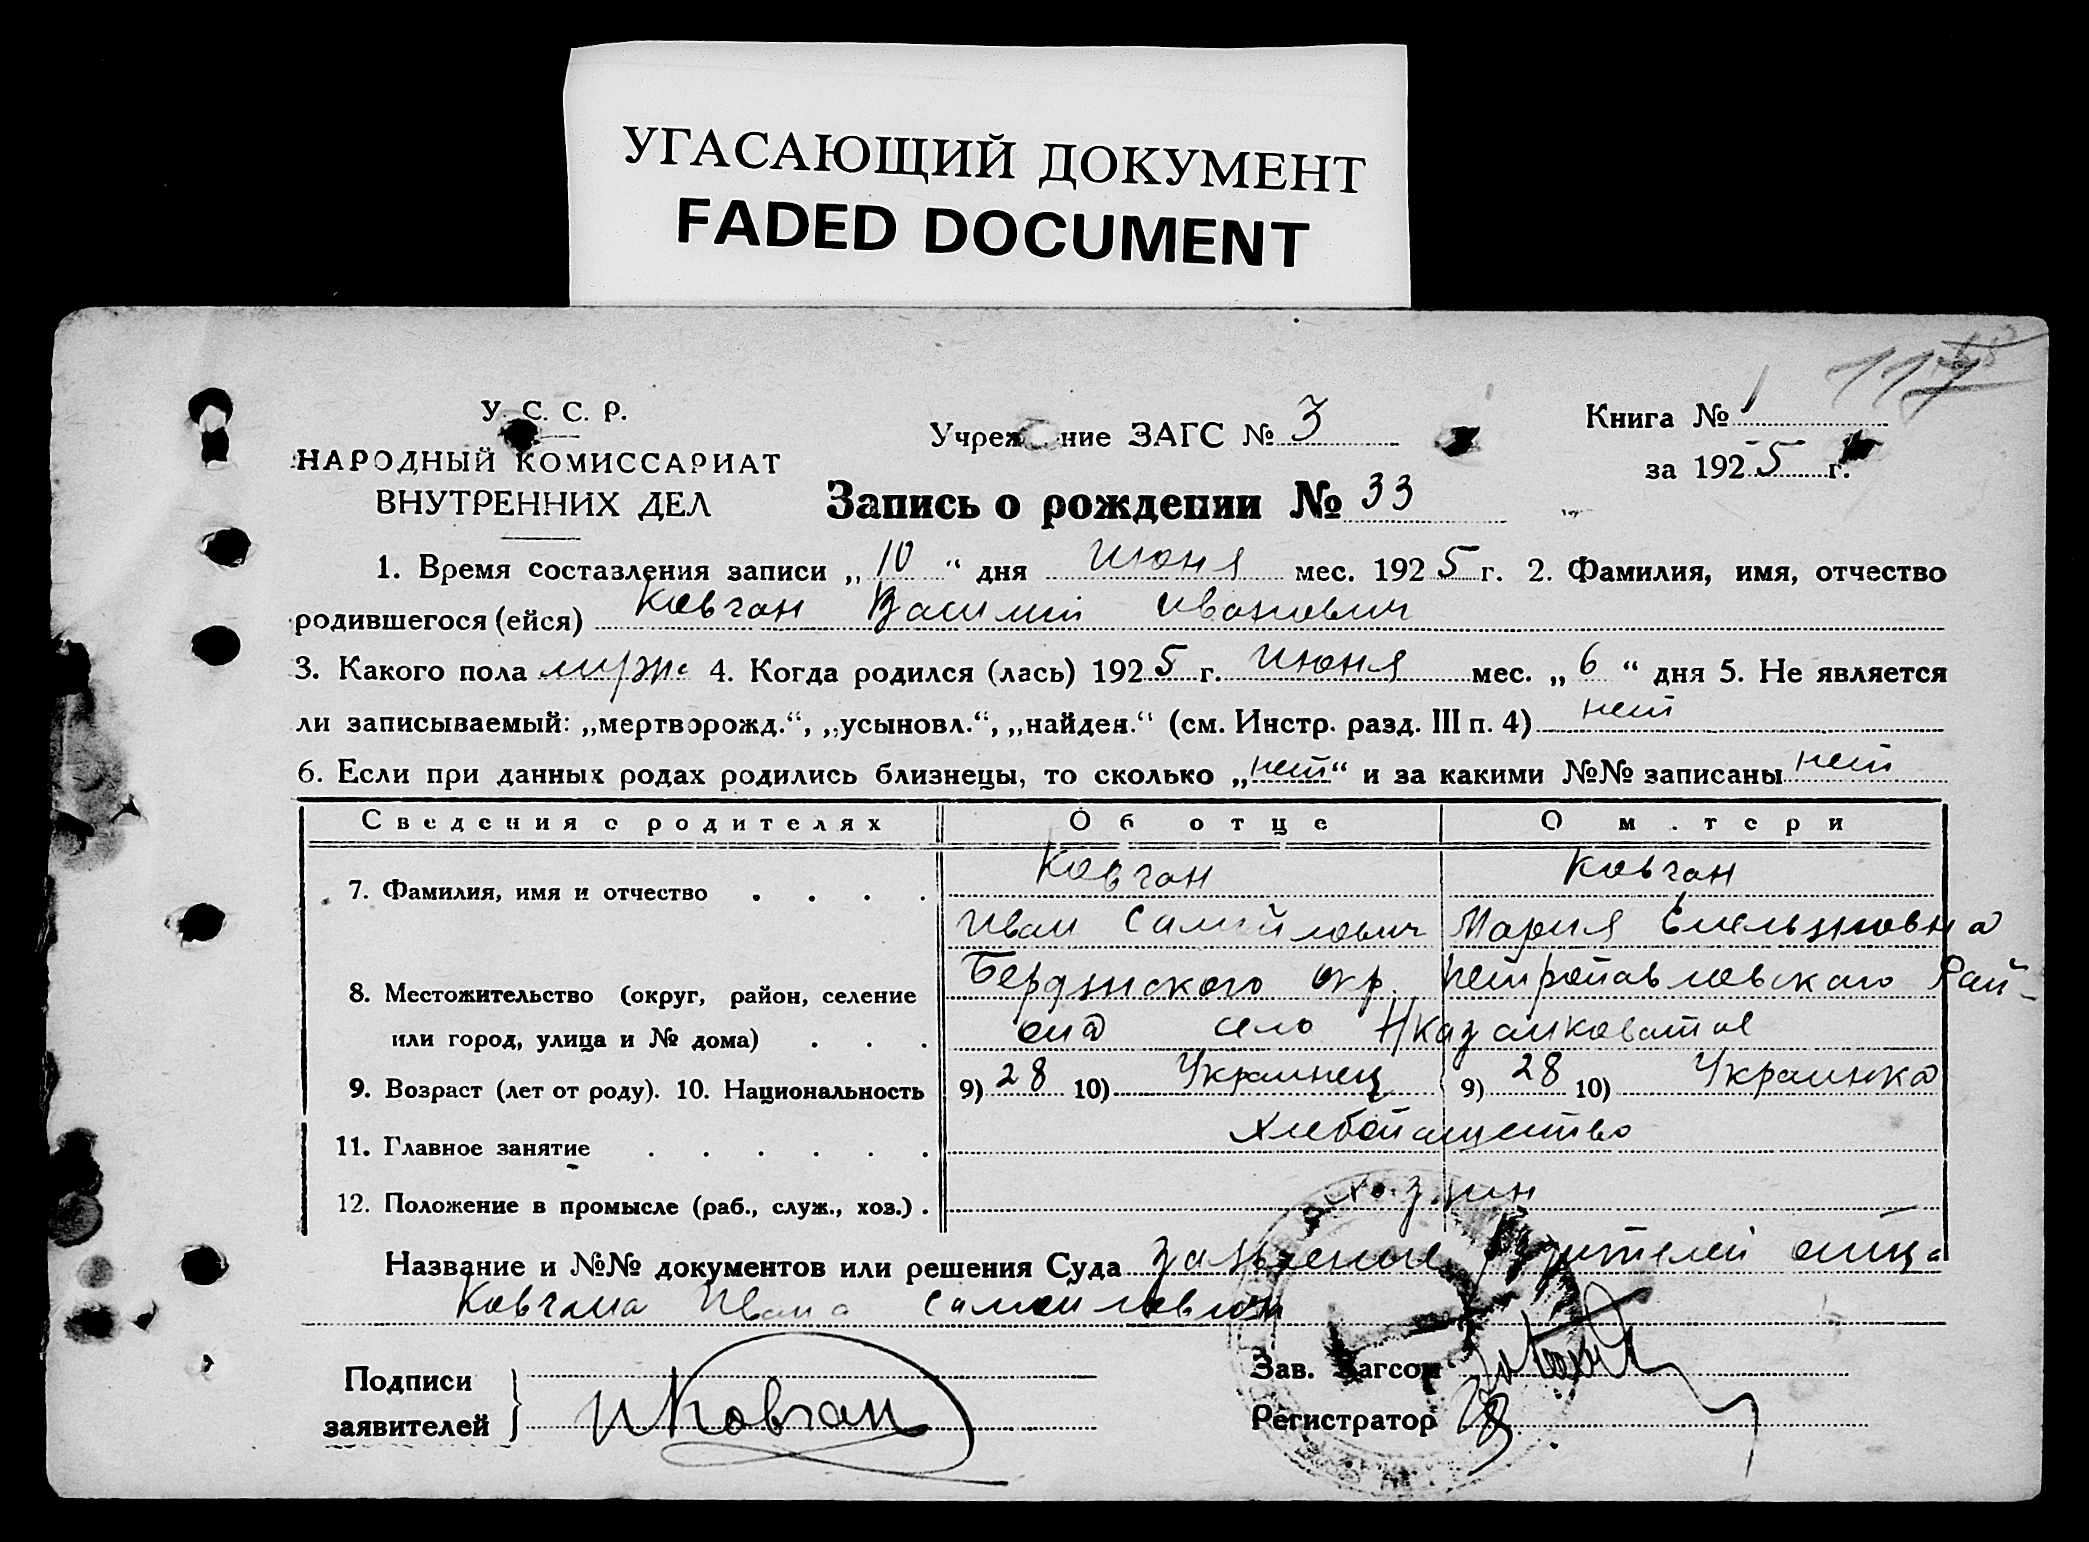 УГАСАЮЩИЙ ДОКУМЕНТ
FADED DOCUMENT
117
У. С. С. Р.
НАРОДНЫЙ КОМИССАРИАТ
ВНУТРЕННИХ ДЕЛ
Учреж ние ЗАГС № 3
Книга № 1
за 1925 г.
Запись о рождении № 33
1. Время составления записи „10“ дня июня мес. 1925 г. 2. Фамилия, имя, отчество
родившегося (ейся) Ковган Василий Иванович
3. Какого пола муж. 4. Когда родился (лась) 1925 г. июня мес. „6“ дня 5. Не является
ли записываемый: „мертворожд.“, „усыновл.“, „найден.“ (см. Инстр. разд. III п. 4) нет
6. Если при данных родах родились близнецы, то сколько „нет“ и за какими №№ записаны нет
Сведения о родителях Об отце О м.тери
7. Фамилия, имя и отчество . . . . Ковган Ковган
Иван Самойлович Мария Емельяновна
8. Местожительство (округ, район, селение Бердянского окр. Петропавловского Рай-
или город, улица и № дома) . . . она село
9. Возраст (лет от роду). 10. Национальность 9) 28 10) Украинец 9) 28 10) Украинка
11. Главное занятие . . . . . . Хлебопашество
12. Положение в промысле (раб., служ., хоз.) . хозяин
Название и №№ документов или решения Суда заявление родителей отца
Ковгана Ивана Самойлович
Подписи
заявителей
И Ковган
Зав. Загсом
Регистратор